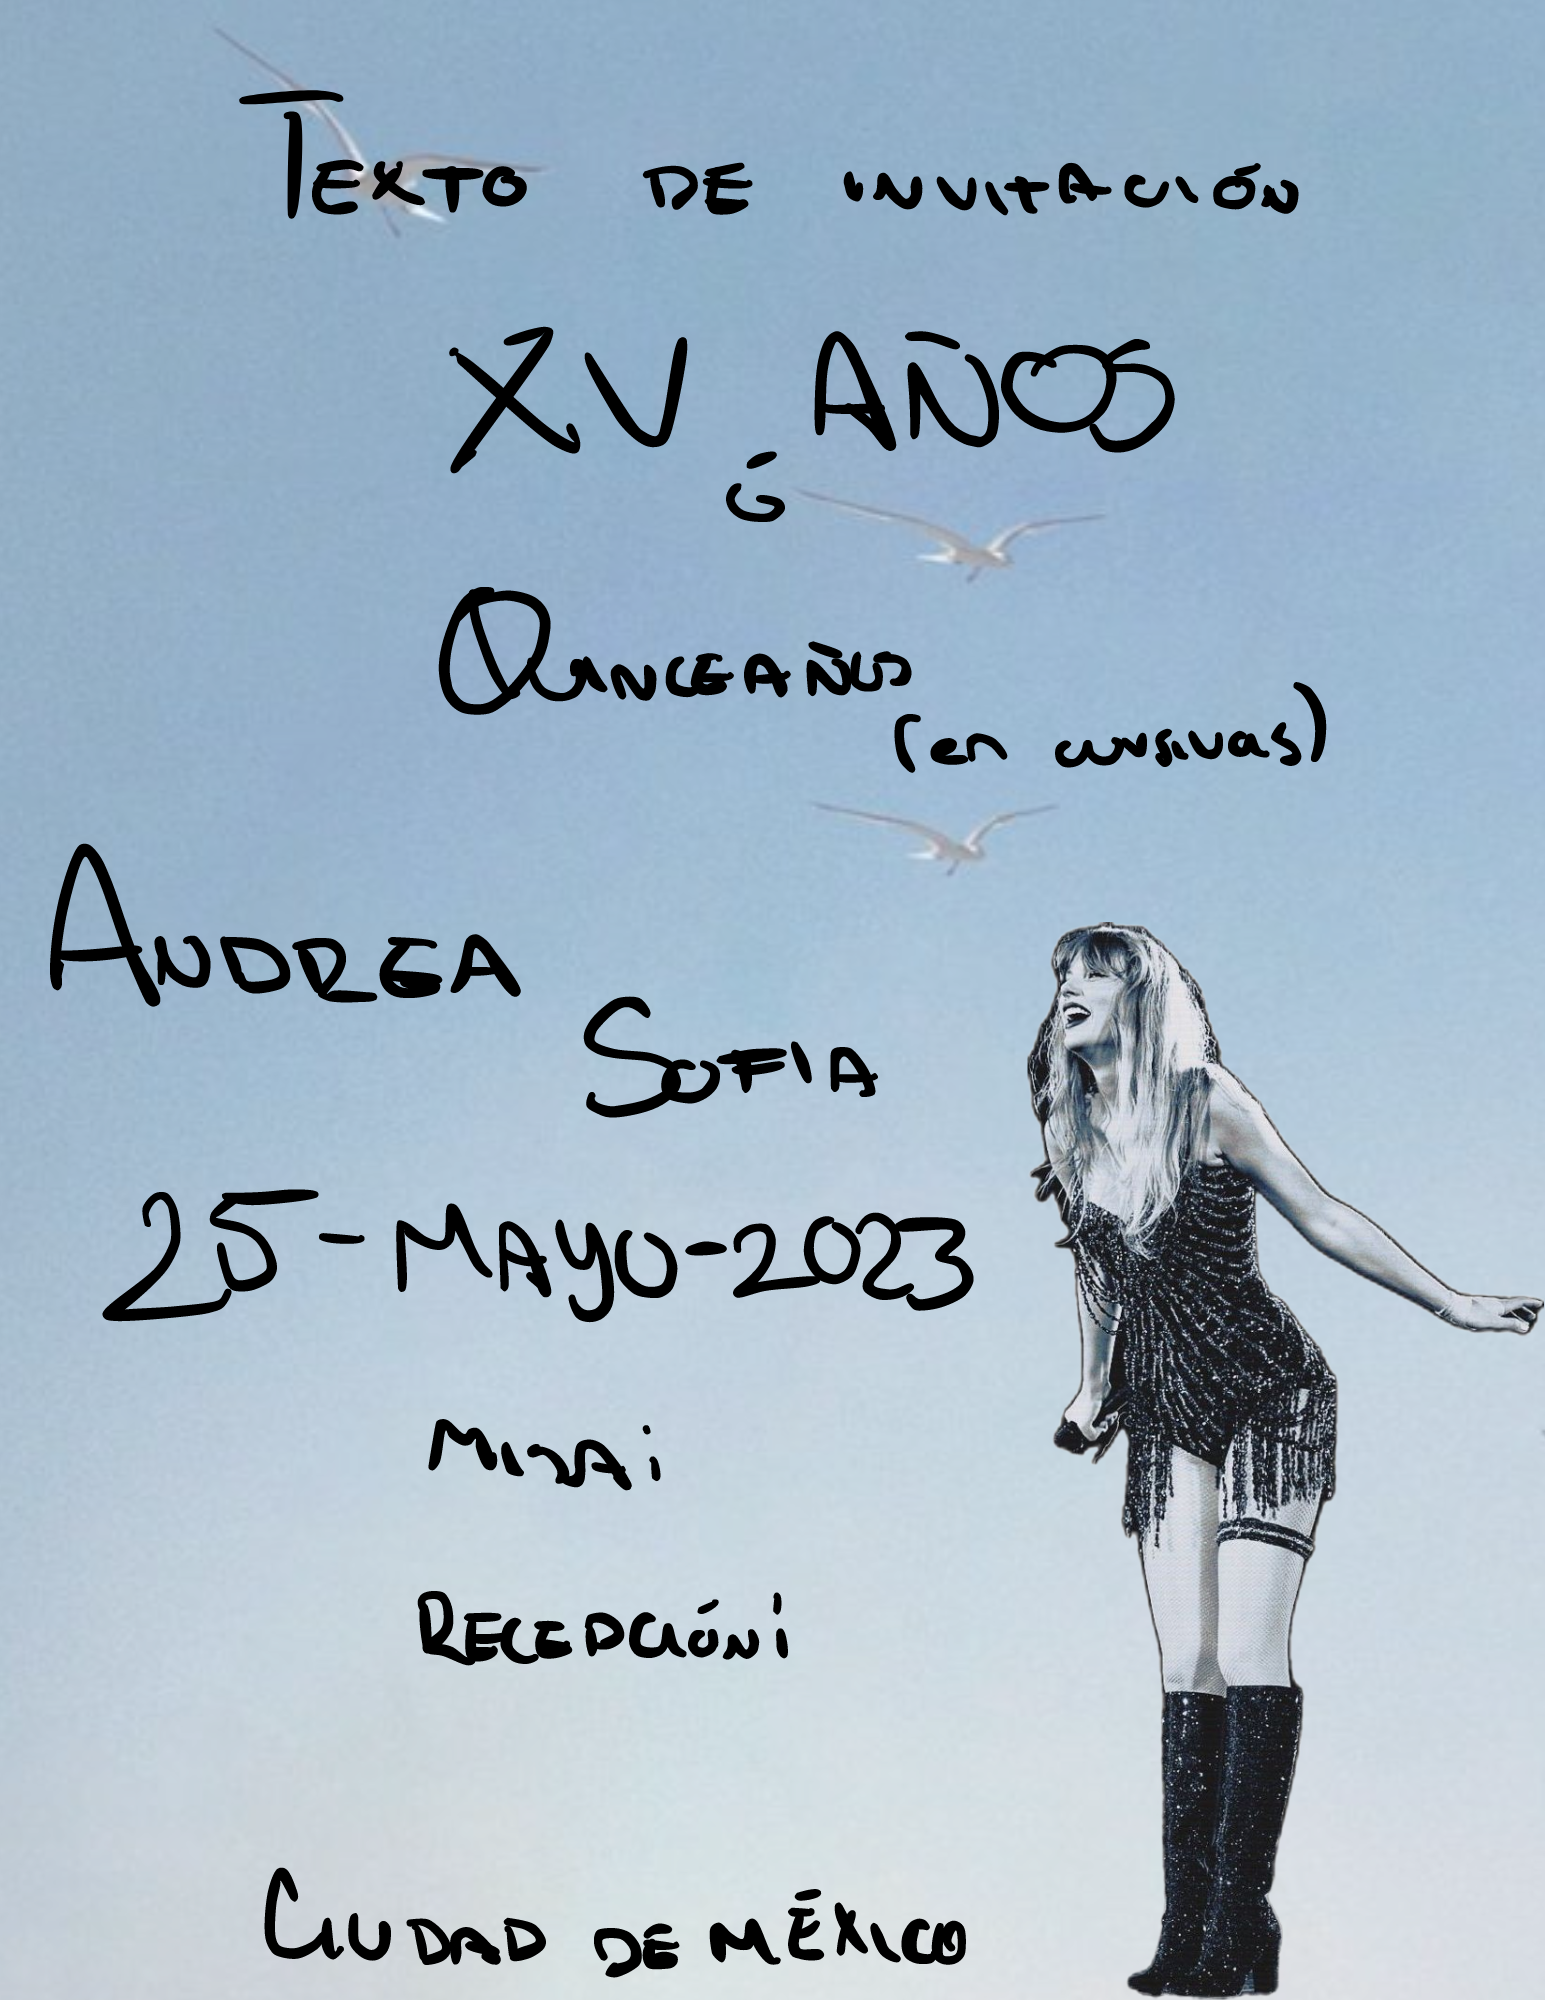 TEXTO DE INVITACIÓN
XV AÑOS
Ó
QUINCEAÑOS
(en cursivas)
ANDREA
SOFIA
25-MAYO-2023
MISA:
RECEPCIÓN:
CIUDAD DE MÉXICO